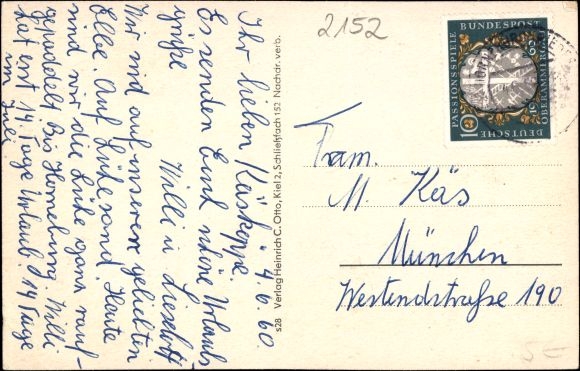 Ihr lieben Käsköppe. 4.6.60.
Es senden Euch schöne Urlaubs
grüße Willi u. Liselott
Wir sind auf unserem geliebten
Elbe. Auf Lühesand. Heute
sind wir die Lühe ganz rauf-
gepaddelt bis Horneburg. Willi
hat erst 14 Tage Urlaub. 14 Tage
im Juli.
s28 Verlag Heinrich C. Otto, Kiel 2, Schließfach 152 Nachdr. verb.
2152
DEUTSCHE BUNDESPOST
PASSIONSSPIELE OBERAMMERGAU
1960
10
Fam.
M. Käs
München
Westendstraße 190